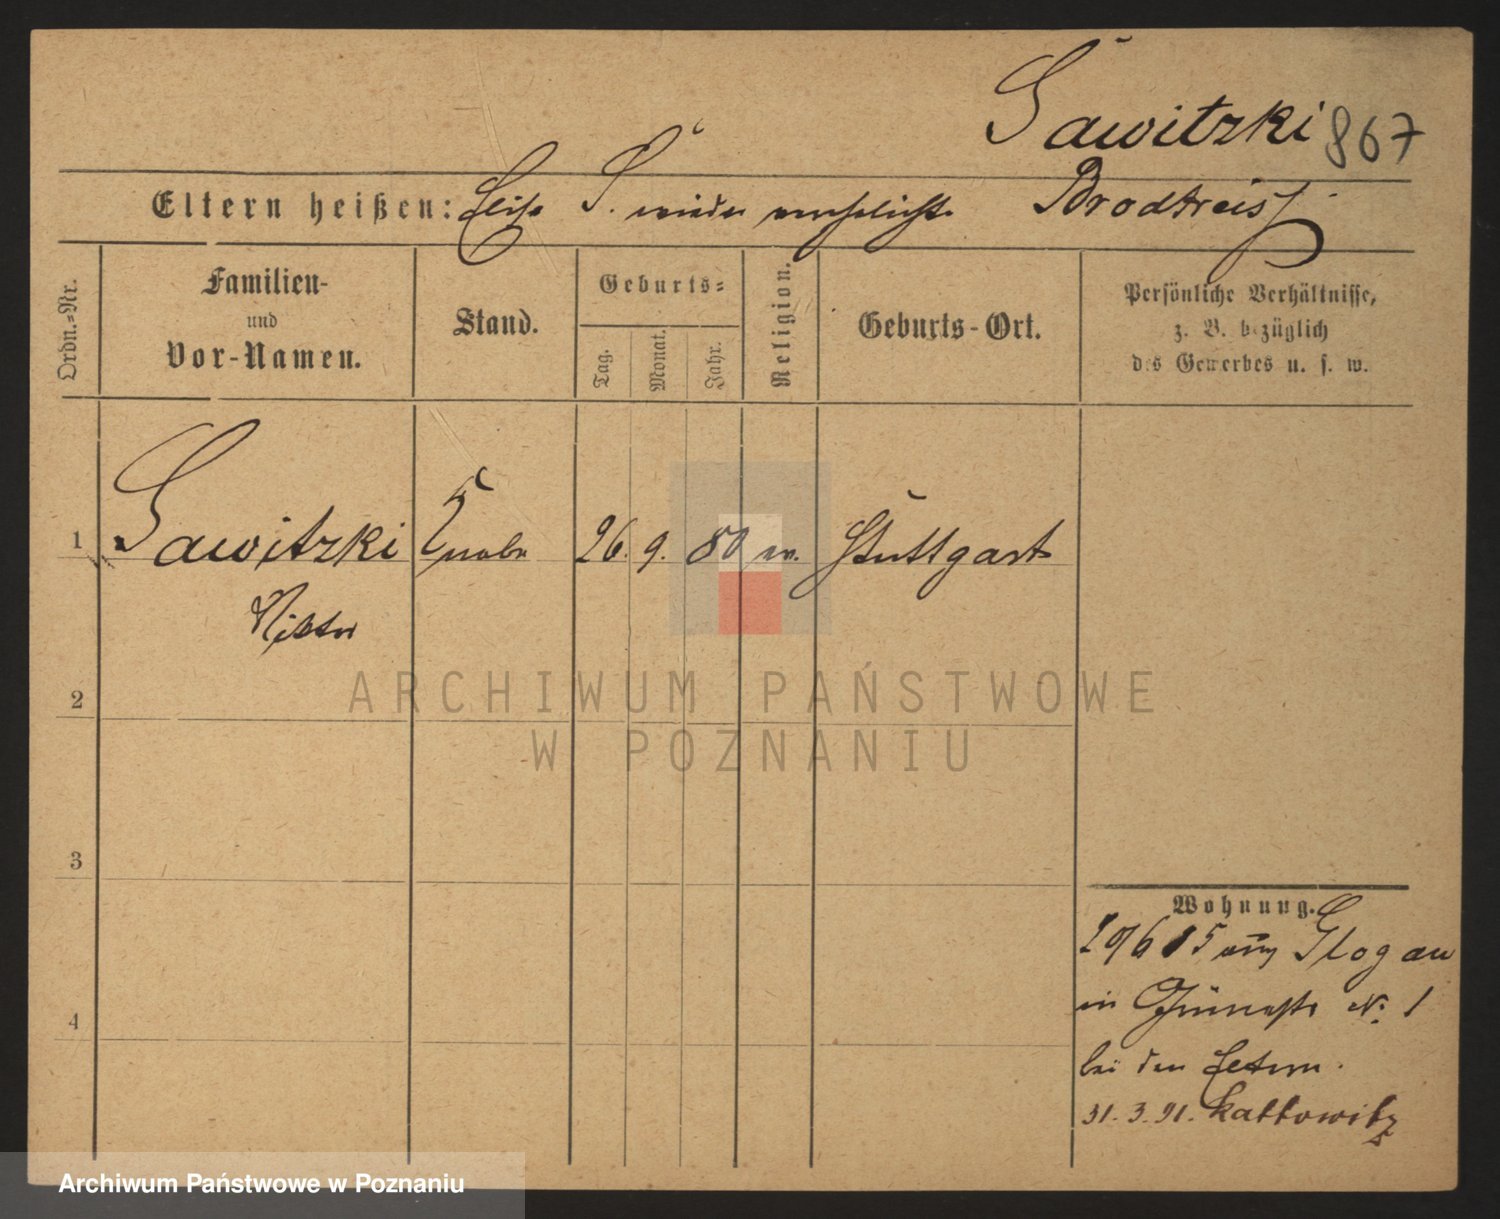 Sawitzki 867
Eltern heißen: Elise S. wieder verehelichte Brodtreiss
Ordn.-Nr.
Familien-
und
Vor-Namen.
Stand.
Geburts-
Tag.
Monat.
Jahr.
Religion.
Geburts-Ort.
Persönliche Verhältnisse,
z. B. bezüglich
des Gewerbes u. s. w.
1 Sawitzki Knabe 26. 9. 80 ev. Stuttgart
Victor
2
3
4
Wohnung.
85 aus Glogau
in No. 1
bei den Eltern.
31. 3. 91. Kattowitz
ARCHIWUM PAŃSTWOWE
W POZNANIU
Archiwum Państwowe w Poznaniu